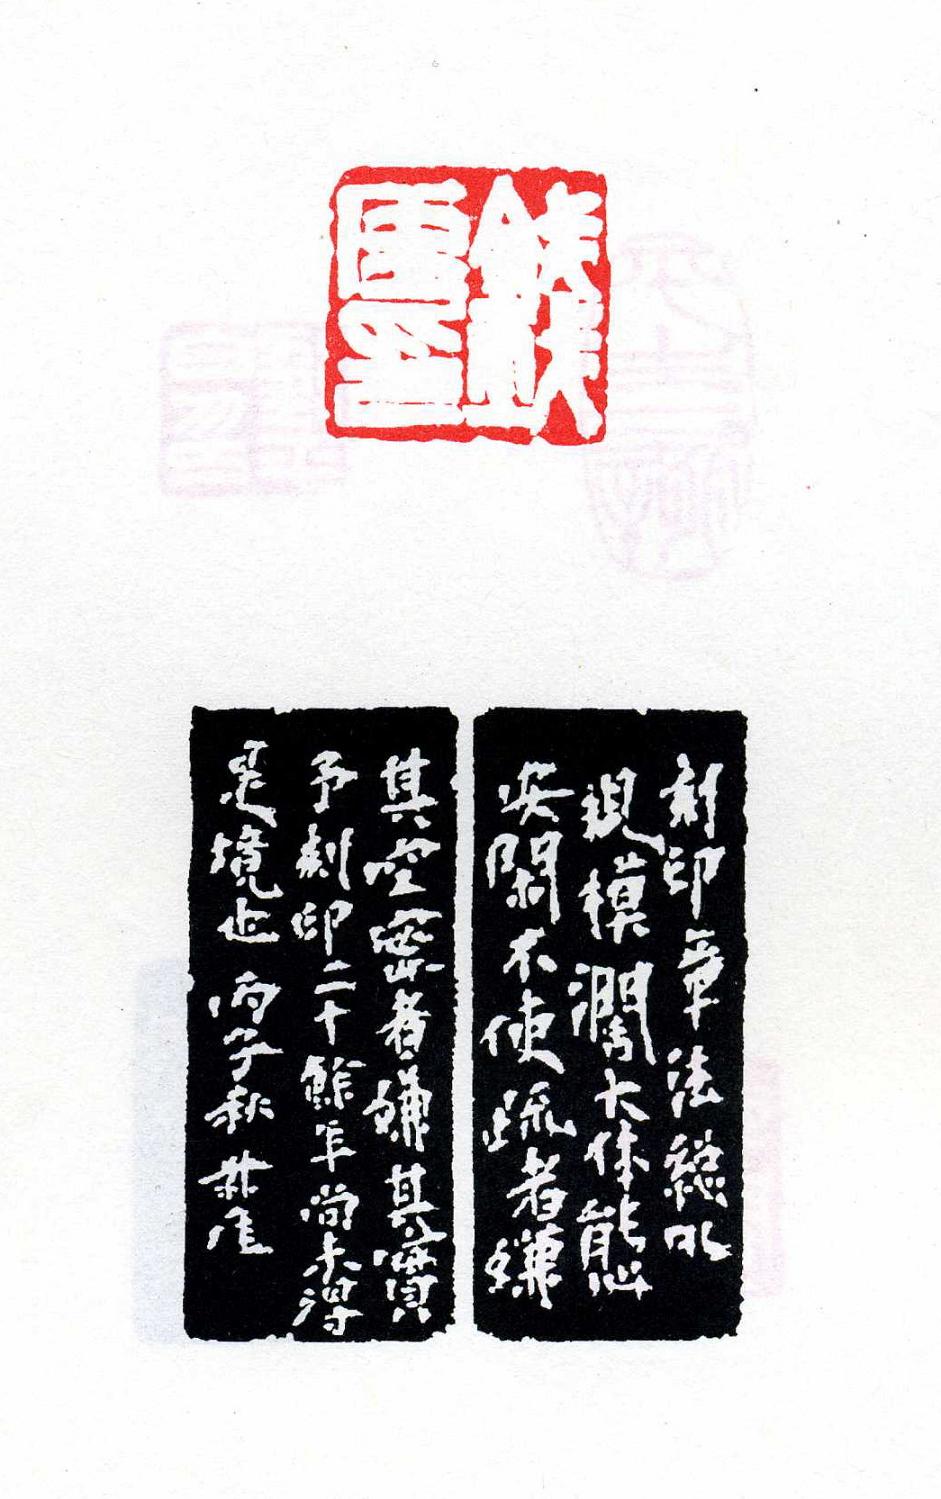 刻印章法総以
規模濶大体態
安閑不使疏者嫌
其空密者嫌其實
予刻印二十餘年尚未得
是境也丙子秋